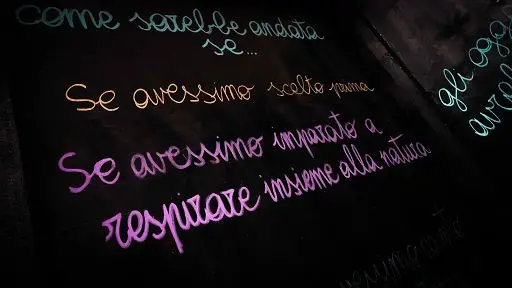 come sarebbe andata
se...
Se avessimo scelto prima
Se avessimo imparato a
respirare insieme alla natura
gli